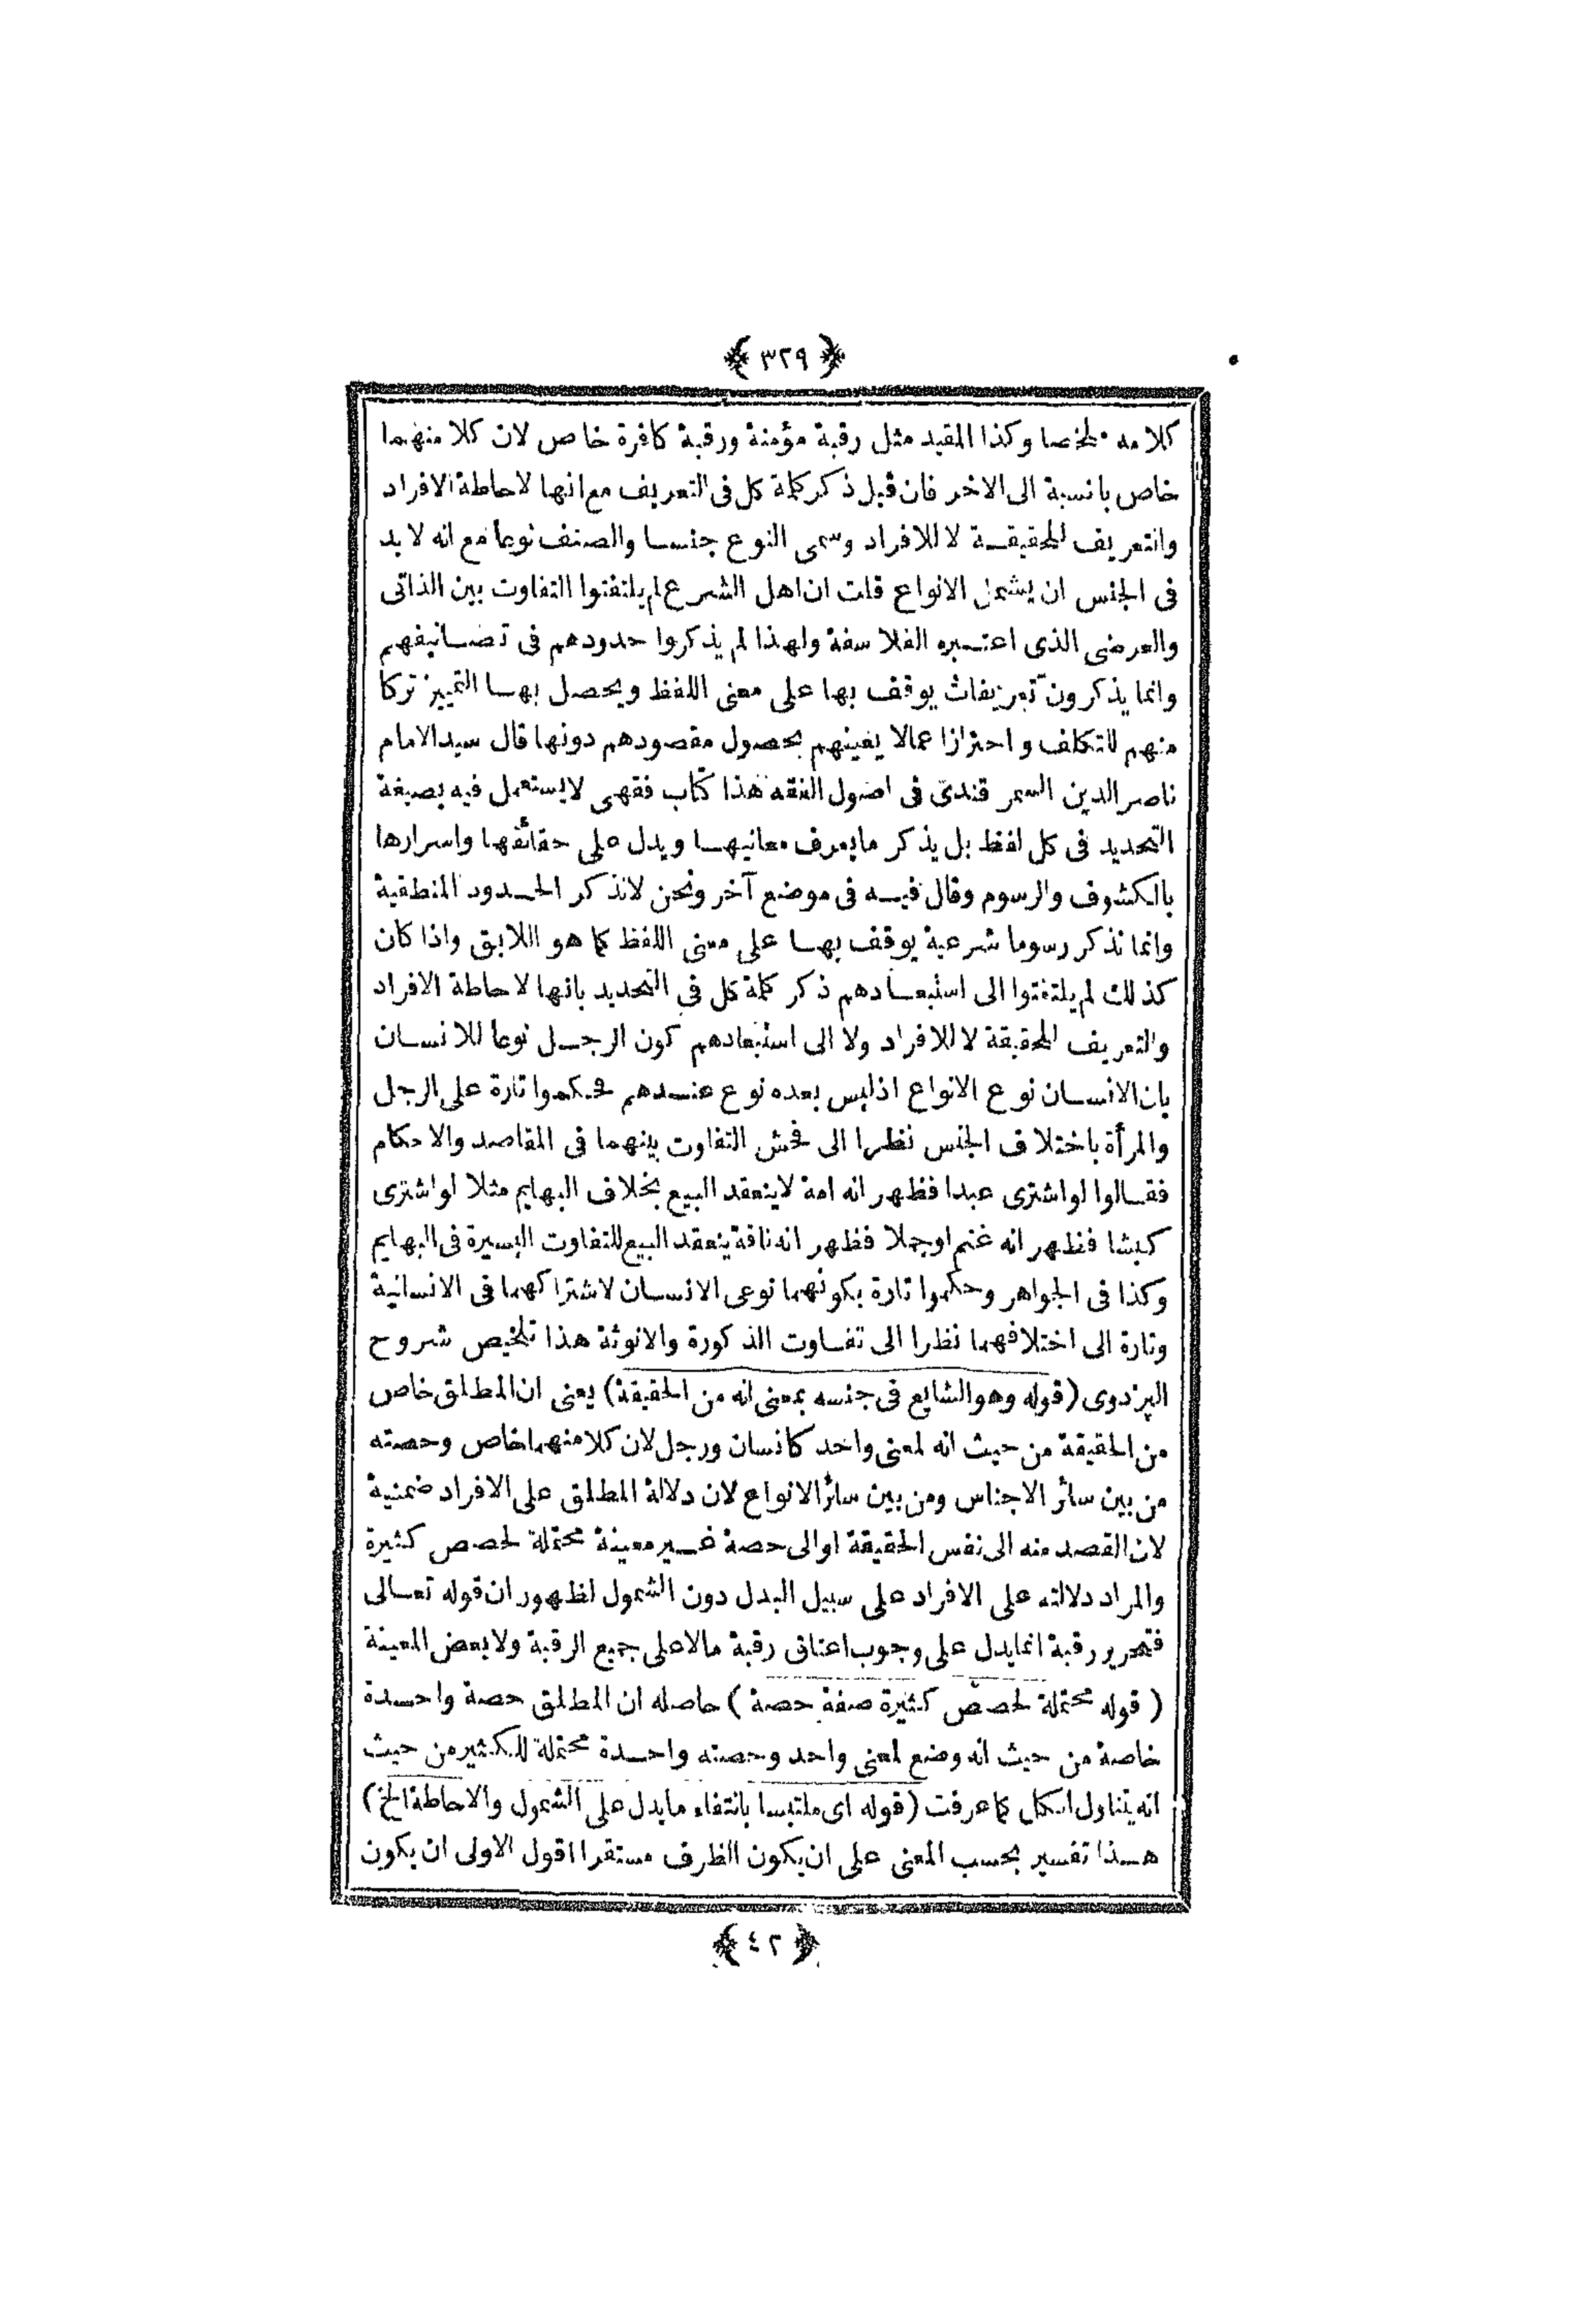 ﴿ ٣٢٩ ﴾
كلامه ملخصا وكذا المقيد مثل رقبة مؤمنة ورقبة كافرة خاص لان كلا منهما
خاص بالنسبة الى الاخر فان قيل ذكر كلمة كل فى التعريف مع انها لاحاطة الافراد
والتعريف للحقيقة لا للافراد وسمى النوع جنسا والصنف نوعا مع انه لا بد
فى الجنس ان يشمل الانواع قلت ان اهل الشرع لم يلتفتوا التفاوت بين الذاتى
والعرضى الذى اعتبره الفلاسفة ولهذا لم يذكروا حدودهم فى تصانيفهم
وانما يذكرون تعريفات يوقف بها على معنى اللفظ ويحصل بها التمييز تركا
منهم للتكلف واحترازا عمالا يعينهم بحصول مقصودهم دونها قال سيد الامام
ناصر الدين السمر قندى فى اصول الفقه هذا كتاب فقهى لا يستعمل فيه بصيغة
التحديد فى كل لفظ بل يذكر ما يعرف معانيها ويدل على حقائقها واسرارها
بالكشوف والرسوم وقال فيه فى موضع آخر ونحن لا نذكر الحدود المنطقية
وانما نذكر رسوما شرعية يوقف بها على معنى اللفظ كما هو اللايق واذا كان
كذلك لم يلتفتوا الى استبعادهم ذكر كلمة كل فى التحديد بانها لاحاطة الافراد
والتعريف للحقيقة لا للافراد ولا الى استبعادهم كون الرجل نوعا للانسان
بان الانسان نوع الانواع اذ ليس بعده نوع عندهم فحكموا تارة على الرجل
والمرأة باختلاف الجنس نظرا الى فحش التفاوت بينهما فى المقاصد والاحكام
فقالوا لو اشترى عبدا فظهر انه امة لا ينعقد البيع بخلاف البهايم مثلا لو اشترى
كبشا فظهر انه غنم او جملا فظهر انه ناقة ينعقد البيع للتفاوت اليسيرة فى البهايم
وكذا فى الجواهر وحكموا تارة بكونهما نوعى الانسان لاشتراكهما فى الانسانية
وتارة الى اختلافهما نظرا الى تفاوت الذكورة والانوثة هذا تلخيص شروح
البزدوى (قوله وهو الشايع فى جنسه بمعنى انه من الحقيقة) يعنى ان المطلق خاص
من الحقيقة من حيث انه لمعنى واحد كانسان ورجل لان كلا منهما خاص وحصته
من بين سائر الاجناس ومن بين سائر الانواع لان دلالة المطلق على الافراد ضمنية
لان القصد منه الى نفس الحقيقة او الى حصة غير معينة محتملة لحصص كثيرة
والمراد دلالته على الافراد على سبيل البدل دون الشمول لظهور ان قوله تعالى
فتحرير رقبة انما يدل على وجوب اعتاق رقبة ما لا على جميع الرقبة ولا بعض المعينة
( قوله محتملة لحصص كثيرة صفة حصة ) حاصله ان المطلق حصة واحدة
خاصة من حيث انه وضع لمعنى واحد وحصته واحدة محتملة للكثير من حيث
انه يتناول الكل كما عرفت (قوله اى ملتبسا بانتفاء ما يدل على الشمول والاحاطة الخ)
هذا تفسير بحسب المعنى على ان يكون الظرف مستقرا اقول الاولى ان يكون
﴿ ٤٢ ﴾